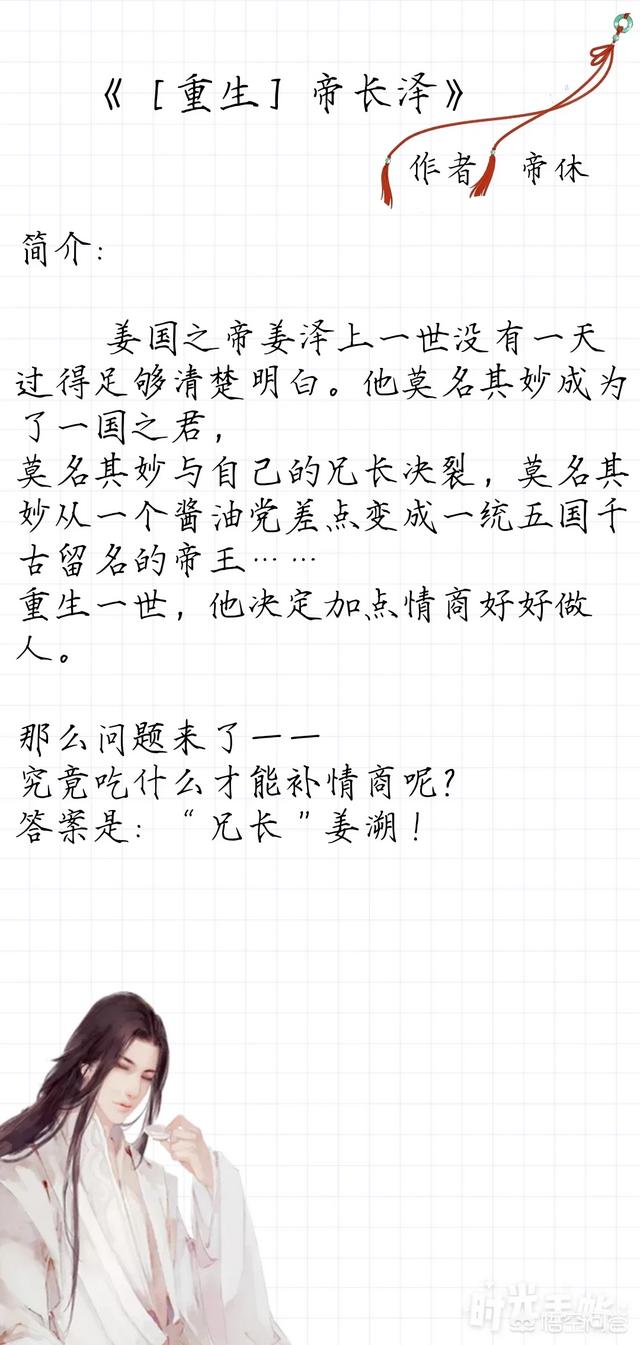 《［重生］帝长泽》
作者 帝休
简介：
姜国之帝姜泽上一世没有一天
过得足够清楚明白。他莫名其妙成为
了一国之君，
莫名其妙与自己的兄长决裂，莫名其
妙从一个酱油党差点变成一统五国千
古留名的帝王……
重生一世，他决定加点情商好好做
人。
那么问题来了——
究竟吃什么才能补情商呢？
答案是：“兄长”姜溯！
时光手帐
悟空问答